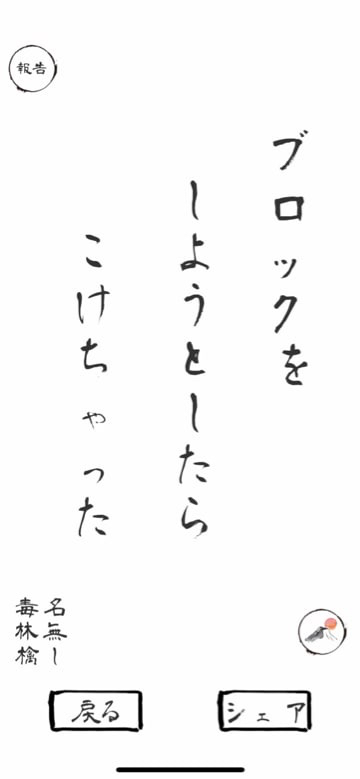 報告
ブロックを
しようとしたら
こけちゃった
名無し
毒林檎
戻る
シェア